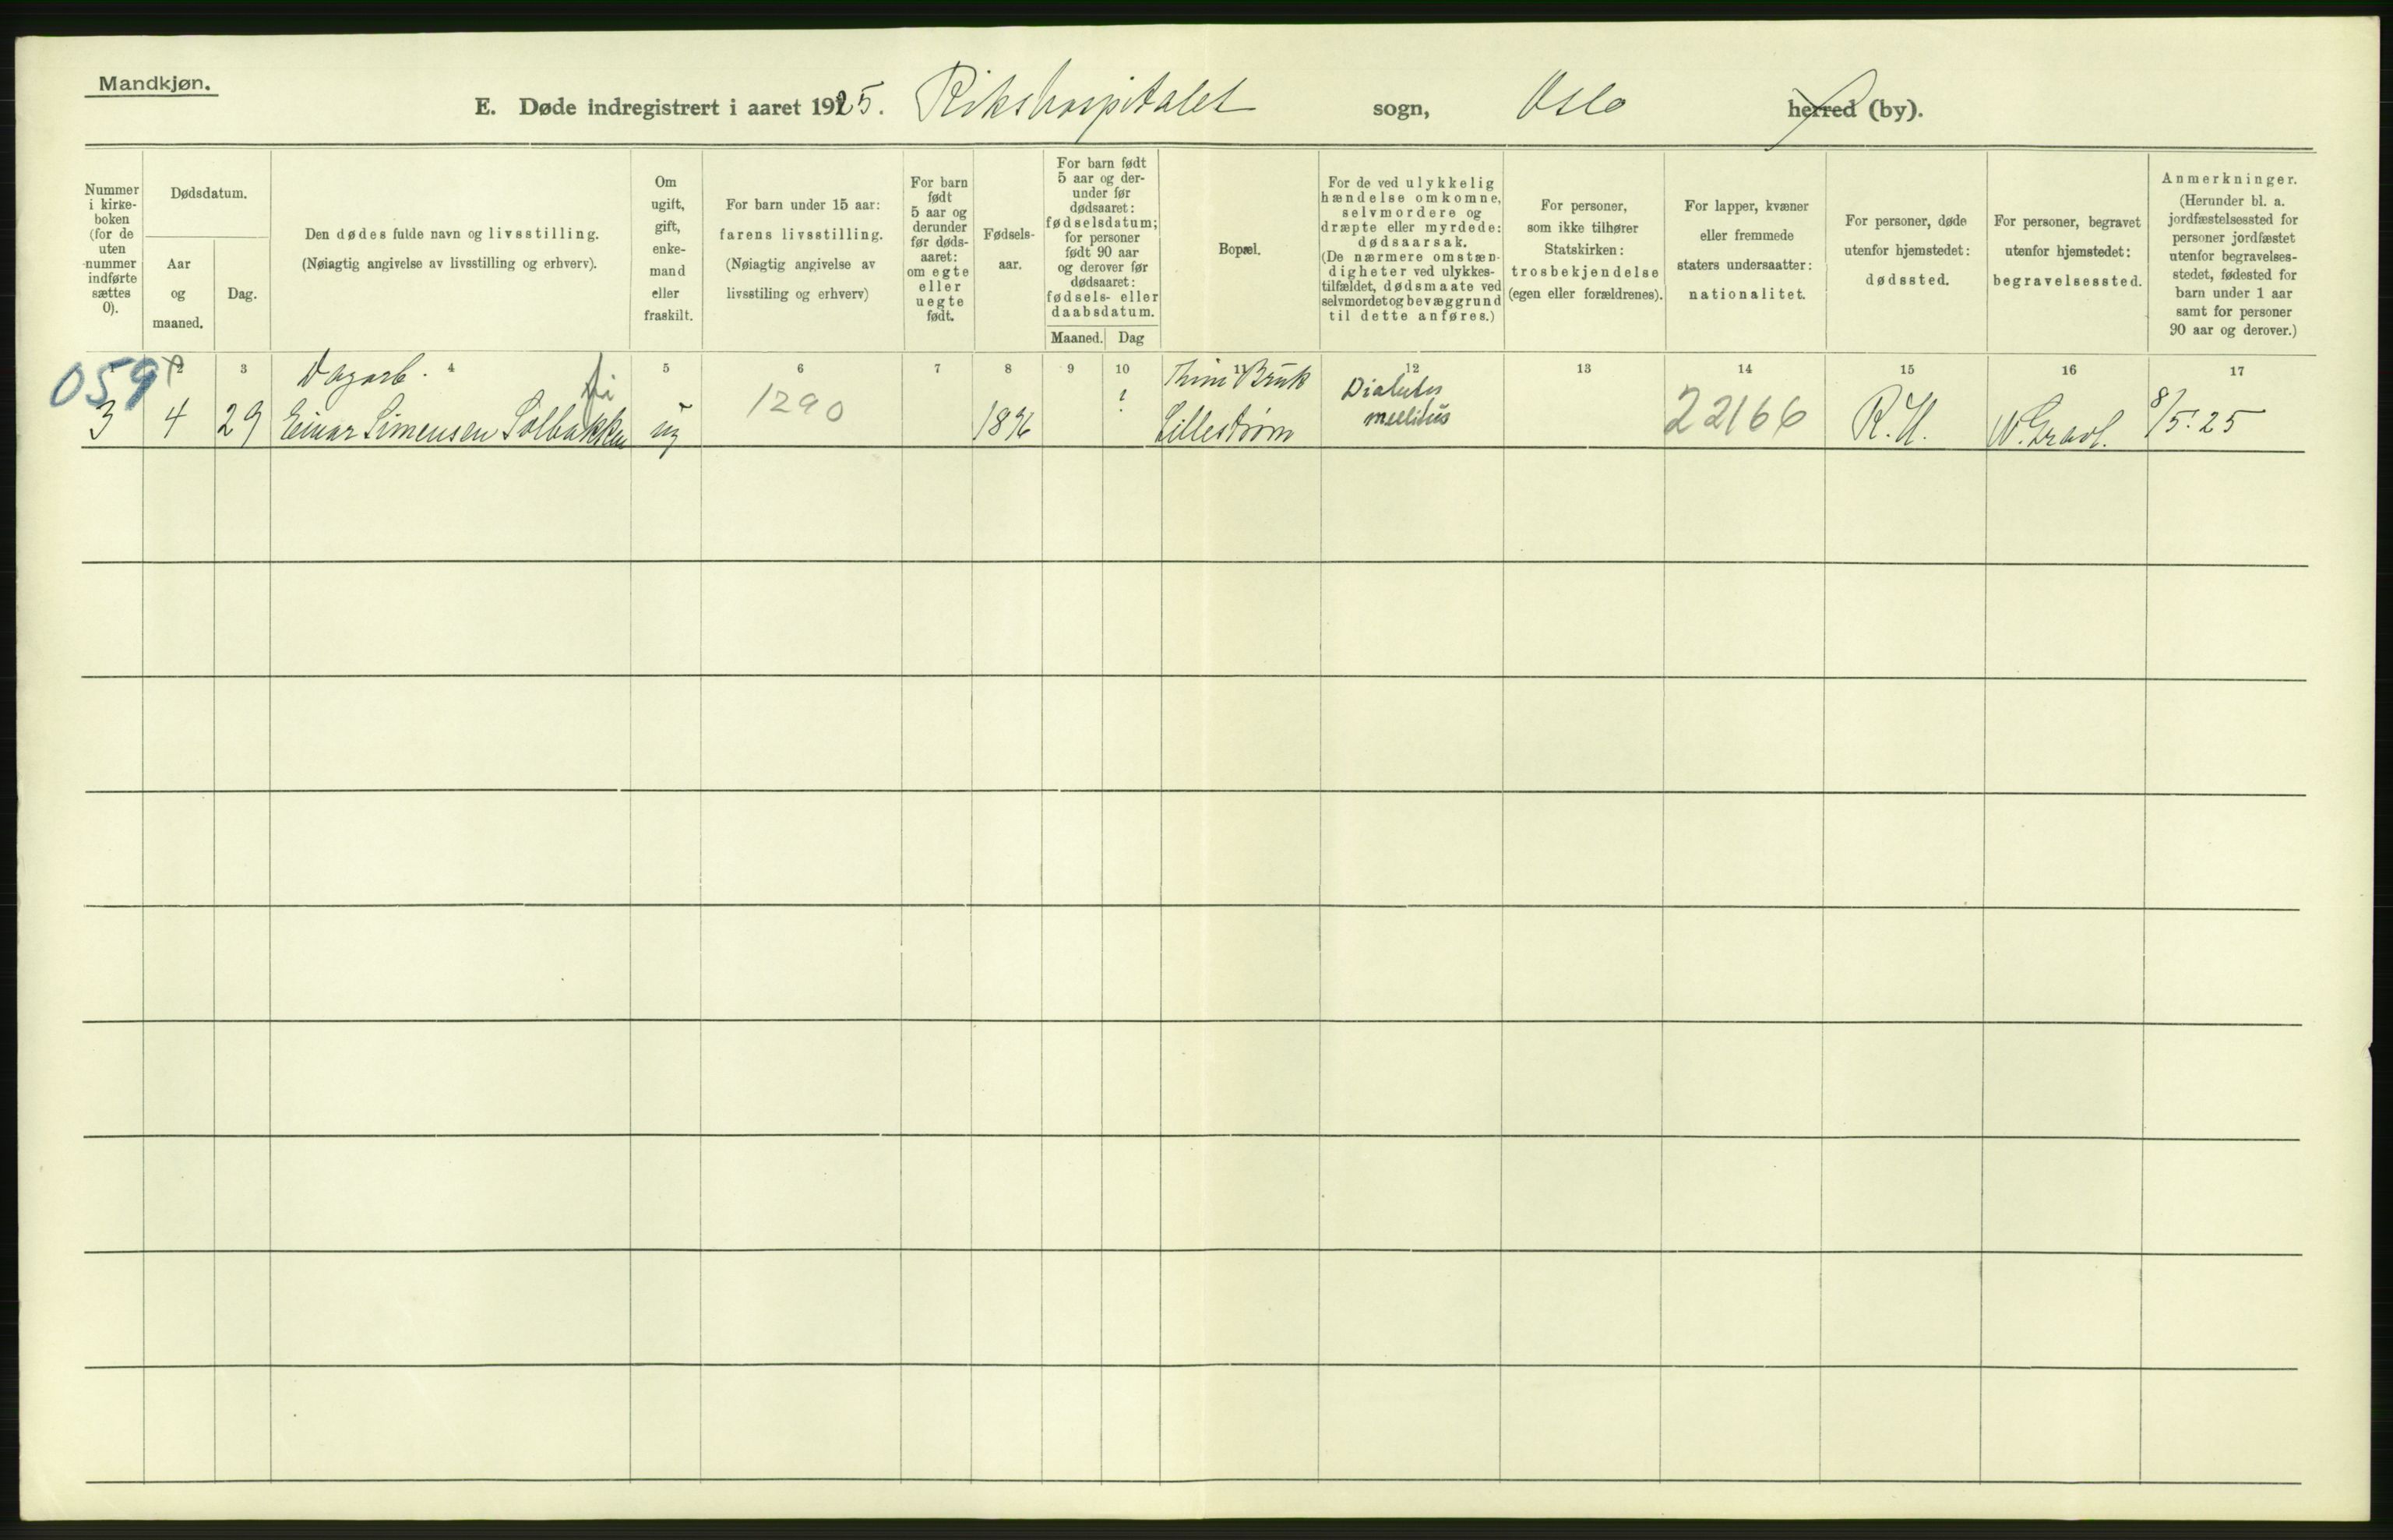 Mandkjøn.
E. Døde indregistrert i aaret 1925. Rikshospitalet sogn, Oslo herred (by).
Nummer
i kirke-
boken
(for de
uten
nummer
indførte
sættes
0).
Dødsdatum.
Aar
og
maaned.
Dag.
Den dødes fulde navn og livsstilling.
(Nøiagtig angivelse av livsstilling og erhverv).
Om
ugift,
gift,
enke-
mand
eller
fraskilt.
For barn under 15 aar:
farens livsstilling.
(Nøiagtig angivelse av
livsstiling og erhverv)
For barn
født
5 aar og
derunder
før døds-
aaret:
om egte
eller
uegte
født.
Fødsels-
aar.
For barn født
5 aar og der-
under før
dødsaaret:
fødselsdatum;
for personer
født 90 aar
og derover før
dødsaaret:
fødsels- eller
daabsdatum.
Maaned. Dag
Bopæl.
For de ved ulykkelig
hændelse omkomne,
selvmordere og
dræpte eller myrdede:
dødsaarsak.
(De nærmere omstæn-
digheter ved ulykkes-
tilfældet, dødsmaate ved
selvmordet og bevæggrund
til dette anføres.)
For personer,
som ikke tilhører
Statskirken:
trosbekjendelse
(egen eller forældrenes).
For lapper, kvæner
eller fremmede
staters undersaatter:
nationalitet.
For personer, døde
utenfor hjemstedet:
dødssted.
For personer, begravet
utenfor hjemstedet:
begravelsessted.
Anmerkninger.
(Herunder bl. a.
jordfæstelsessted for
personer jordfæstet
utenfor begravelses-
stedet, fødested for
barn under 1 aar
samt for personer
90 aar og derover.)
1 2 3 4 5 6 7 8 9 10 11 12 13 14 15 16 17
059
Dagarb.
3 4 29 Einar Simensen Solbakken ug 1290 1896 ?
Bruk
Lillestrøm
Diabetes
mellitus
22166 R.H. V. Gravl. 8/5.25